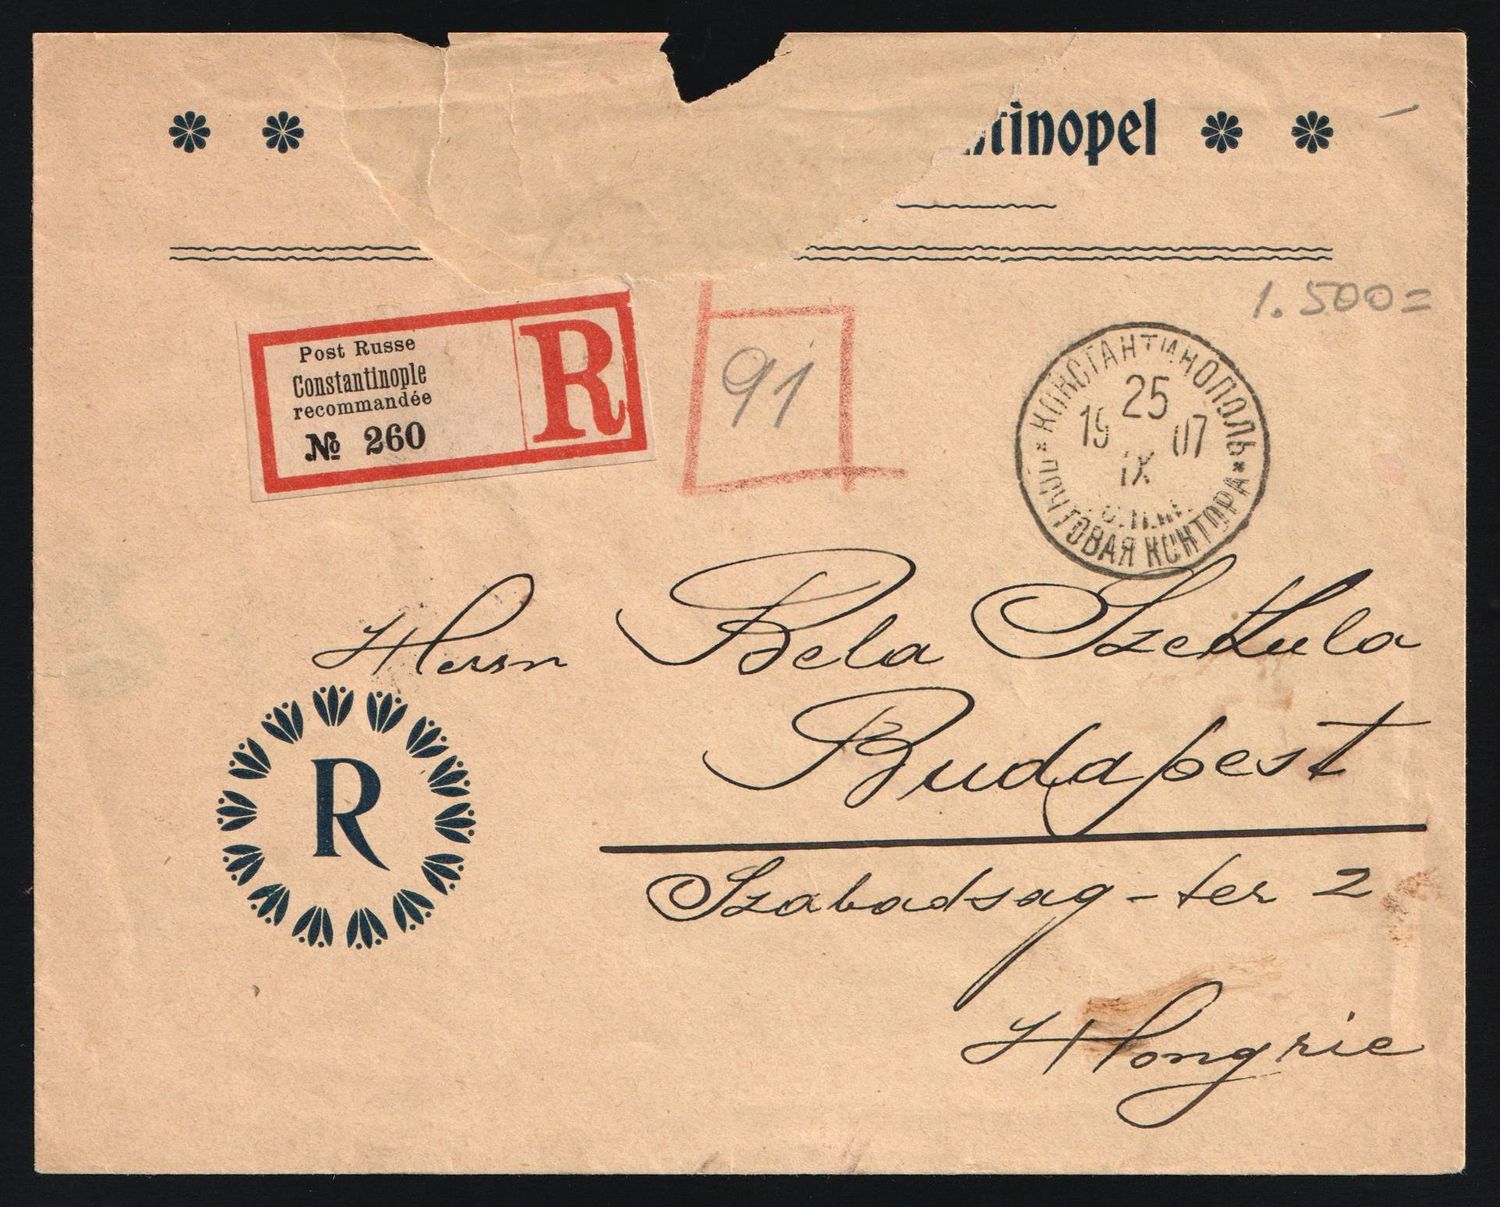 ntinopel
1.500=
Post Russe
Constantinople
recommandée
№ 260
R
91
КОНСТАНТИНОПОЛЬ
25
19 07
IX
ПОЧТОВАЯ КОНТОРА
Herrn Bela Szekula
Budapest
R
Szabadsag-ter 2
Hongrie